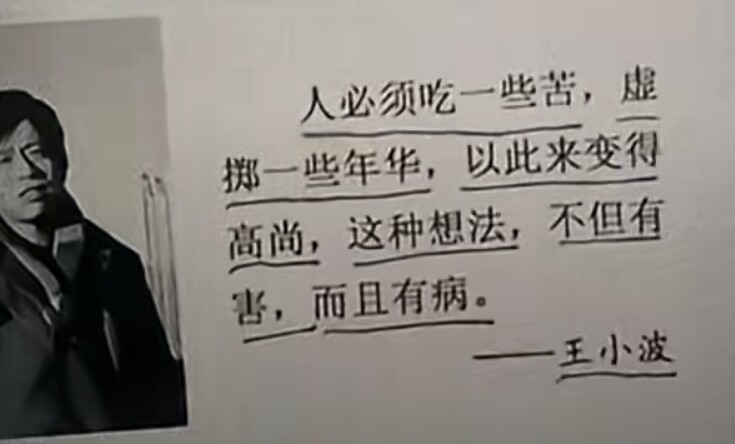 人必须吃一些苦，虚
掷一些年华，以此来变得
高尚，这种想法，不但有
害，而且有病。
——王小波